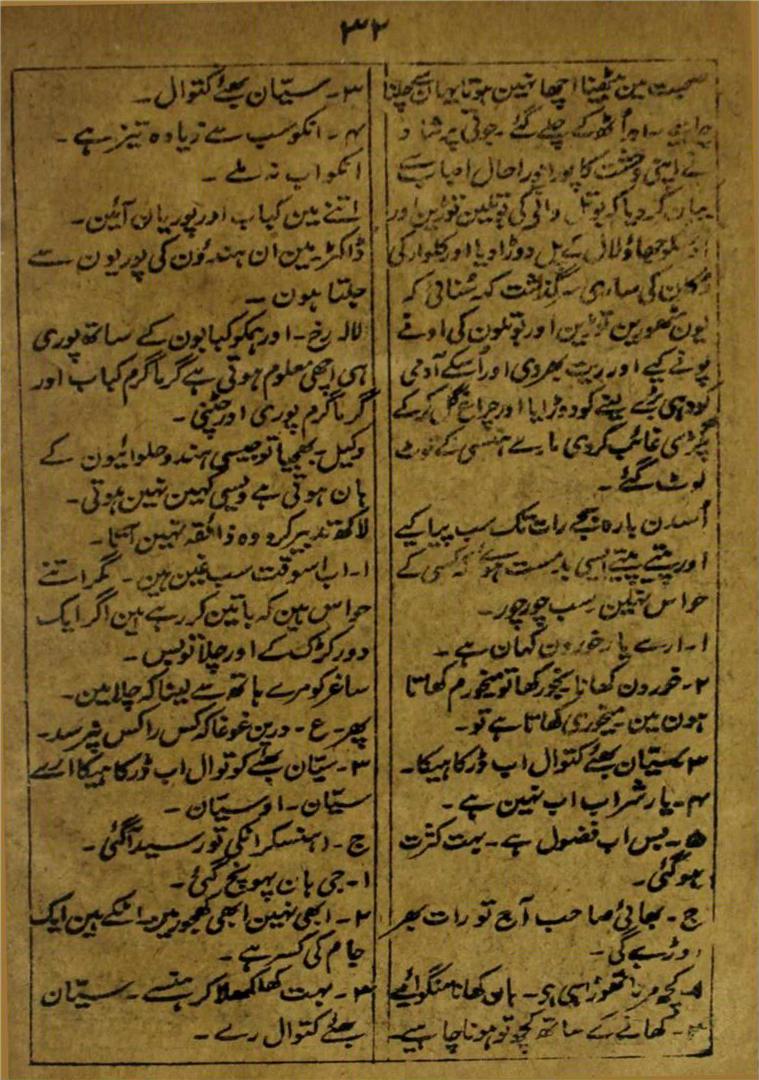 ۳۲
صحبت مین بیٹھنا اچھا نہین ہوتا یہان سے چلنا
چاہیے۔ اور اُٹھ کے چلے گئے۔ جوتی پرشاد
نے اپنی وحشت کا پورا پورا حال احباب سے
بیان کر دیا کہ بوتل والی کی بوتلین توڑین اور
اُسکو جھاؤلال کے پل دوڑا دیا اور کلوار کی
دُکان کی ساری سرگذشت کہہ سُنائی کہ
یون کھورین توڑین اور بوتلون کی اونے
پونے کیے اور ریت بھردی اور اُسکے آدمی
کو دہی بڑے لینے کو دوڑایا اور چراغ گل کرکے
پگڑی غائب کردی مارے ہنسی کے لوٹ
لوٹ گئے۔
اُسدن بارہ بجے رات تک سب پیا کیے
اور پیتے پیتے ایسی بدمست ہوئے کہ کسی کے
حواس نہین سب چور چور۔
۱۔ ارے یار خوردن کہان ہے۔
۲۔ خوردن کھانا بخور کھا تو میخورم کھاتا
ہون مین۔ میخوری کھاتا ہے تو۔
۳۔ سیّان بھئے کتوال اب ڈر کاہیکا۔
۴۔ یار شراب اب نہین ہے۔
۵۔ بس اب فضول ہے۔ بہت کثرت
ہوگئی۔
ج۔ بھائی صاحب آج تو رات بھر
دوڑے گی۔
۱۔ کچھ مرنا تھوڑا ہی ہی۔ ہان کھانا منگوائیے
۲۔ کھانے کے ساتھ کچھ تو ہونا چاہیے۔
۳۔ سیّان بھئے کتوال۔
۴۔ انکو سب سے زیادہ تیز ہے۔
انکو اب نہ ملے۔
اتنے مین کباب اور پوریان آئین۔
ڈاکٹر۔ مین ان ہندوُن کی پوریون سے
جلتا ہون۔
لالہ رخ۔ اور ہمکو کبابون کے ساتھ پوری
ہی اچھی معلوم ہوتی ہے گرماگرم کباب اور
گرماگرم پوری اور چٹنی۔
وکیل۔ بھجیا تو جیسی ہندو حلوائیون کے
ہان ہوتی ہے ویسی کہین نہین ہوتی۔
لاکھ تدبیر کرو وہ ذائقہ نہین آتا۔
۱۔ اب اسوقت سب غین ہین۔ مگر اتنے
حواس ہین کہ باتین کر رہے ہین اگر ایک
دور کڑک کے اور چلا تو بس۔
ساغر کو مرے ہاتھ سے لینا کہ چلا مین۔
پھر۔ ع۔ درین غوغا کہ کس را کس نپرسد۔
۳۔ سیّان بھئے کوتوال اب ڈر کاہیکا ارے
سیّان۔ او سیّان۔
ج۔ (ہنسکر) انکی تو رسید آگئی۔
۱۔ جی ہان پہونچ گئی۔
۲۔ ابھی نہین ابھی کھجور مین اٹکے ہین ایک
جام کی کسر ہے۔
۳۔ بہت کھلکھلا کر ہنسے۔ سیّان
بھئے کتوال رے۔